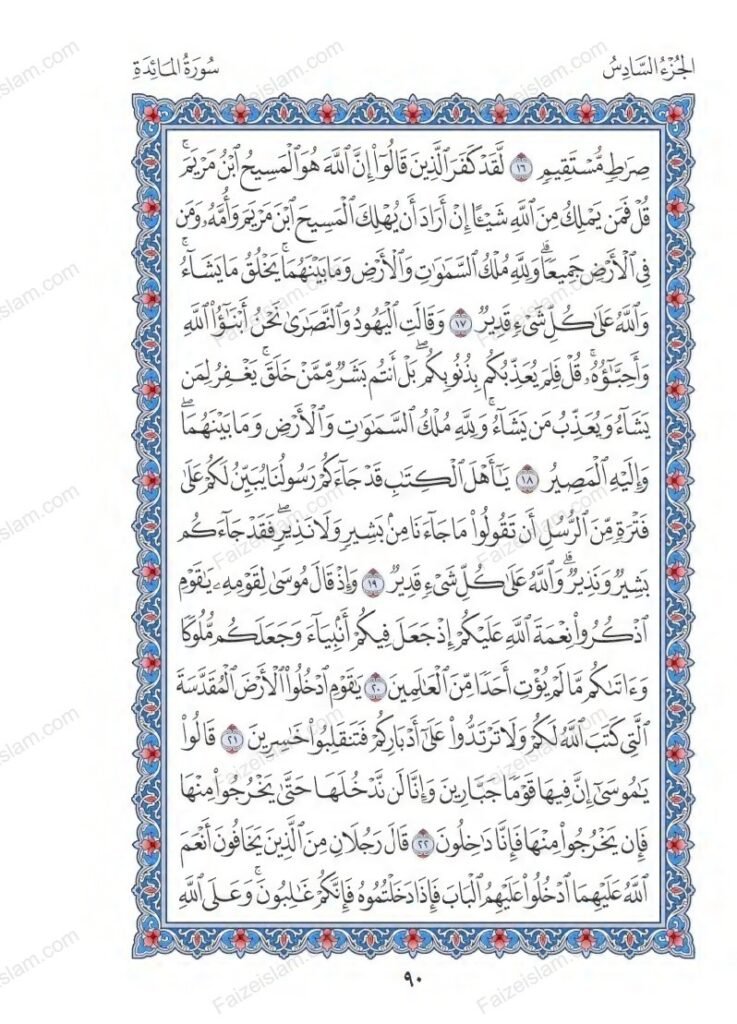 الجُزْءُ السَّادِسُ
سُورَةُ المَائِدَةِ
صِرَٰطٍ مُّسْتَقِيمٍ ١٦ لَّقَدْ كَفَرَ ٱلَّذِينَ قَالُوٓا۟ إِنَّ ٱللَّهَ هُوَ ٱلْمَسِيحُ ٱبْنُ مَرْيَمَ ۚ
قُلْ فَمَن يَمْلِكُ مِنَ ٱللَّهِ شَيْـًٔا إِنْ أَرَادَ أَن يُهْلِكَ ٱلْمَسِيحَ ٱبْنَ مَرْيَمَ وَأُمَّهُۥ وَمَن
فِى ٱلْأَرْضِ جَمِيعًا ۗ وَلِلَّهِ مُلْكُ ٱلسَّمَٰوَٰتِ وَٱلْأَرْضِ وَمَا بَيْنَهُمَا ۚ يَخْلُقُ مَا يَشَآءُ ۚ
وَٱللَّهُ عَلَىٰ كُلِّ شَىْءٍ قَدِيرٌ ١٧ وَقَالَتِ ٱلْيَهُودُ وَٱلنَّصَٰرَىٰ نَحْنُ أَبْنَٰٓؤُا۟ ٱللَّهِ
وَأَحِبَّٰٓؤُهُۥ ۚ قُلْ فَلِمَ يُعَذِّبُكُم بِذُنُوبِكُم ۖ بَلْ أَنتُم بَشَرٌ مِّمَّنْ خَلَقَ ۚ يَغْفِرُ لِمَن
يَشَآءُ وَيُعَذِّبُ مَن يَشَآءُ ۚ وَلِلَّهِ مُلْكُ ٱلسَّمَٰوَٰتِ وَٱلْأَرْضِ وَمَا بَيْنَهُمَا ۖ
وَإِلَيْهِ ٱلْمَصِيرُ ١٨ يَٰٓأَهْلَ ٱلْكِتَٰبِ قَدْ جَآءَكُمْ رَسُولُنَا يُبَيِّنُ لَكُمْ عَلَىٰ
فَتْرَةٍ مِّنَ ٱلرُّسُلِ أَن تَقُولُوا۟ مَا جَآءَنَا مِنۢ بَشِيرٍ وَلَا نَذِيرٍ ۖ فَقَدْ جَآءَكُم
بَشِيرٌ وَنَذِيرٌ ۗ وَٱللَّهُ عَلَىٰ كُلِّ شَىْءٍ قَدِيرٌ ١٩ وَإِذْ قَالَ مُوسَىٰ لِقَوْمِهِۦ يَٰقَوْمِ
ٱذْكُرُوا۟ نِعْمَةَ ٱللَّهِ عَلَيْكُمْ إِذْ جَعَلَ فِيكُمْ أَنۢبِيَآءَ وَجَعَلَكُم مُّلُوكًا
وَءَاتَىٰكُم مَّا لَمْ يُؤْتِ أَحَدًا مِّنَ ٱلْعَٰلَمِينَ ٢٠ يَٰقَوْمِ ٱدْخُلُوا۟ ٱلْأَرْضَ ٱلْمُقَدَّسَةَ
ٱلَّتِى كَتَبَ ٱللَّهُ لَكُمْ وَلَا تَرْتَدُّوا۟ عَلَىٰٓ أَدْبَارِكُمْ فَتَنقَلِبُوا۟ خَٰسِرِينَ ٢١ قَالُوا۟
يَٰمُوسَىٰٓ إِنَّ فِيهَا قَوْمًا جَبَّارِينَ وَإِنَّا لَن نَّدْخُلَهَا حَتَّىٰ يَخْرُجُوا۟ مِنْهَا
فَإِن يَخْرُجُوا۟ مِنْهَا فَإِنَّا دَٰخِلُونَ ٢٢ قَالَ رَجُلَانِ مِنَ ٱلَّذِينَ يَخَافُونَ أَنْعَمَ
ٱللَّهُ عَلَيْهِمَا ٱدْخُلُوا۟ عَلَيْهِمُ ٱلْبَابَ فَإِذَا دَخَلْتُمُوهُ فَإِنَّكُمْ غَٰلِبُونَ ۚ وَعَلَى ٱللَّهِ
٩٠
Faizeislam.com